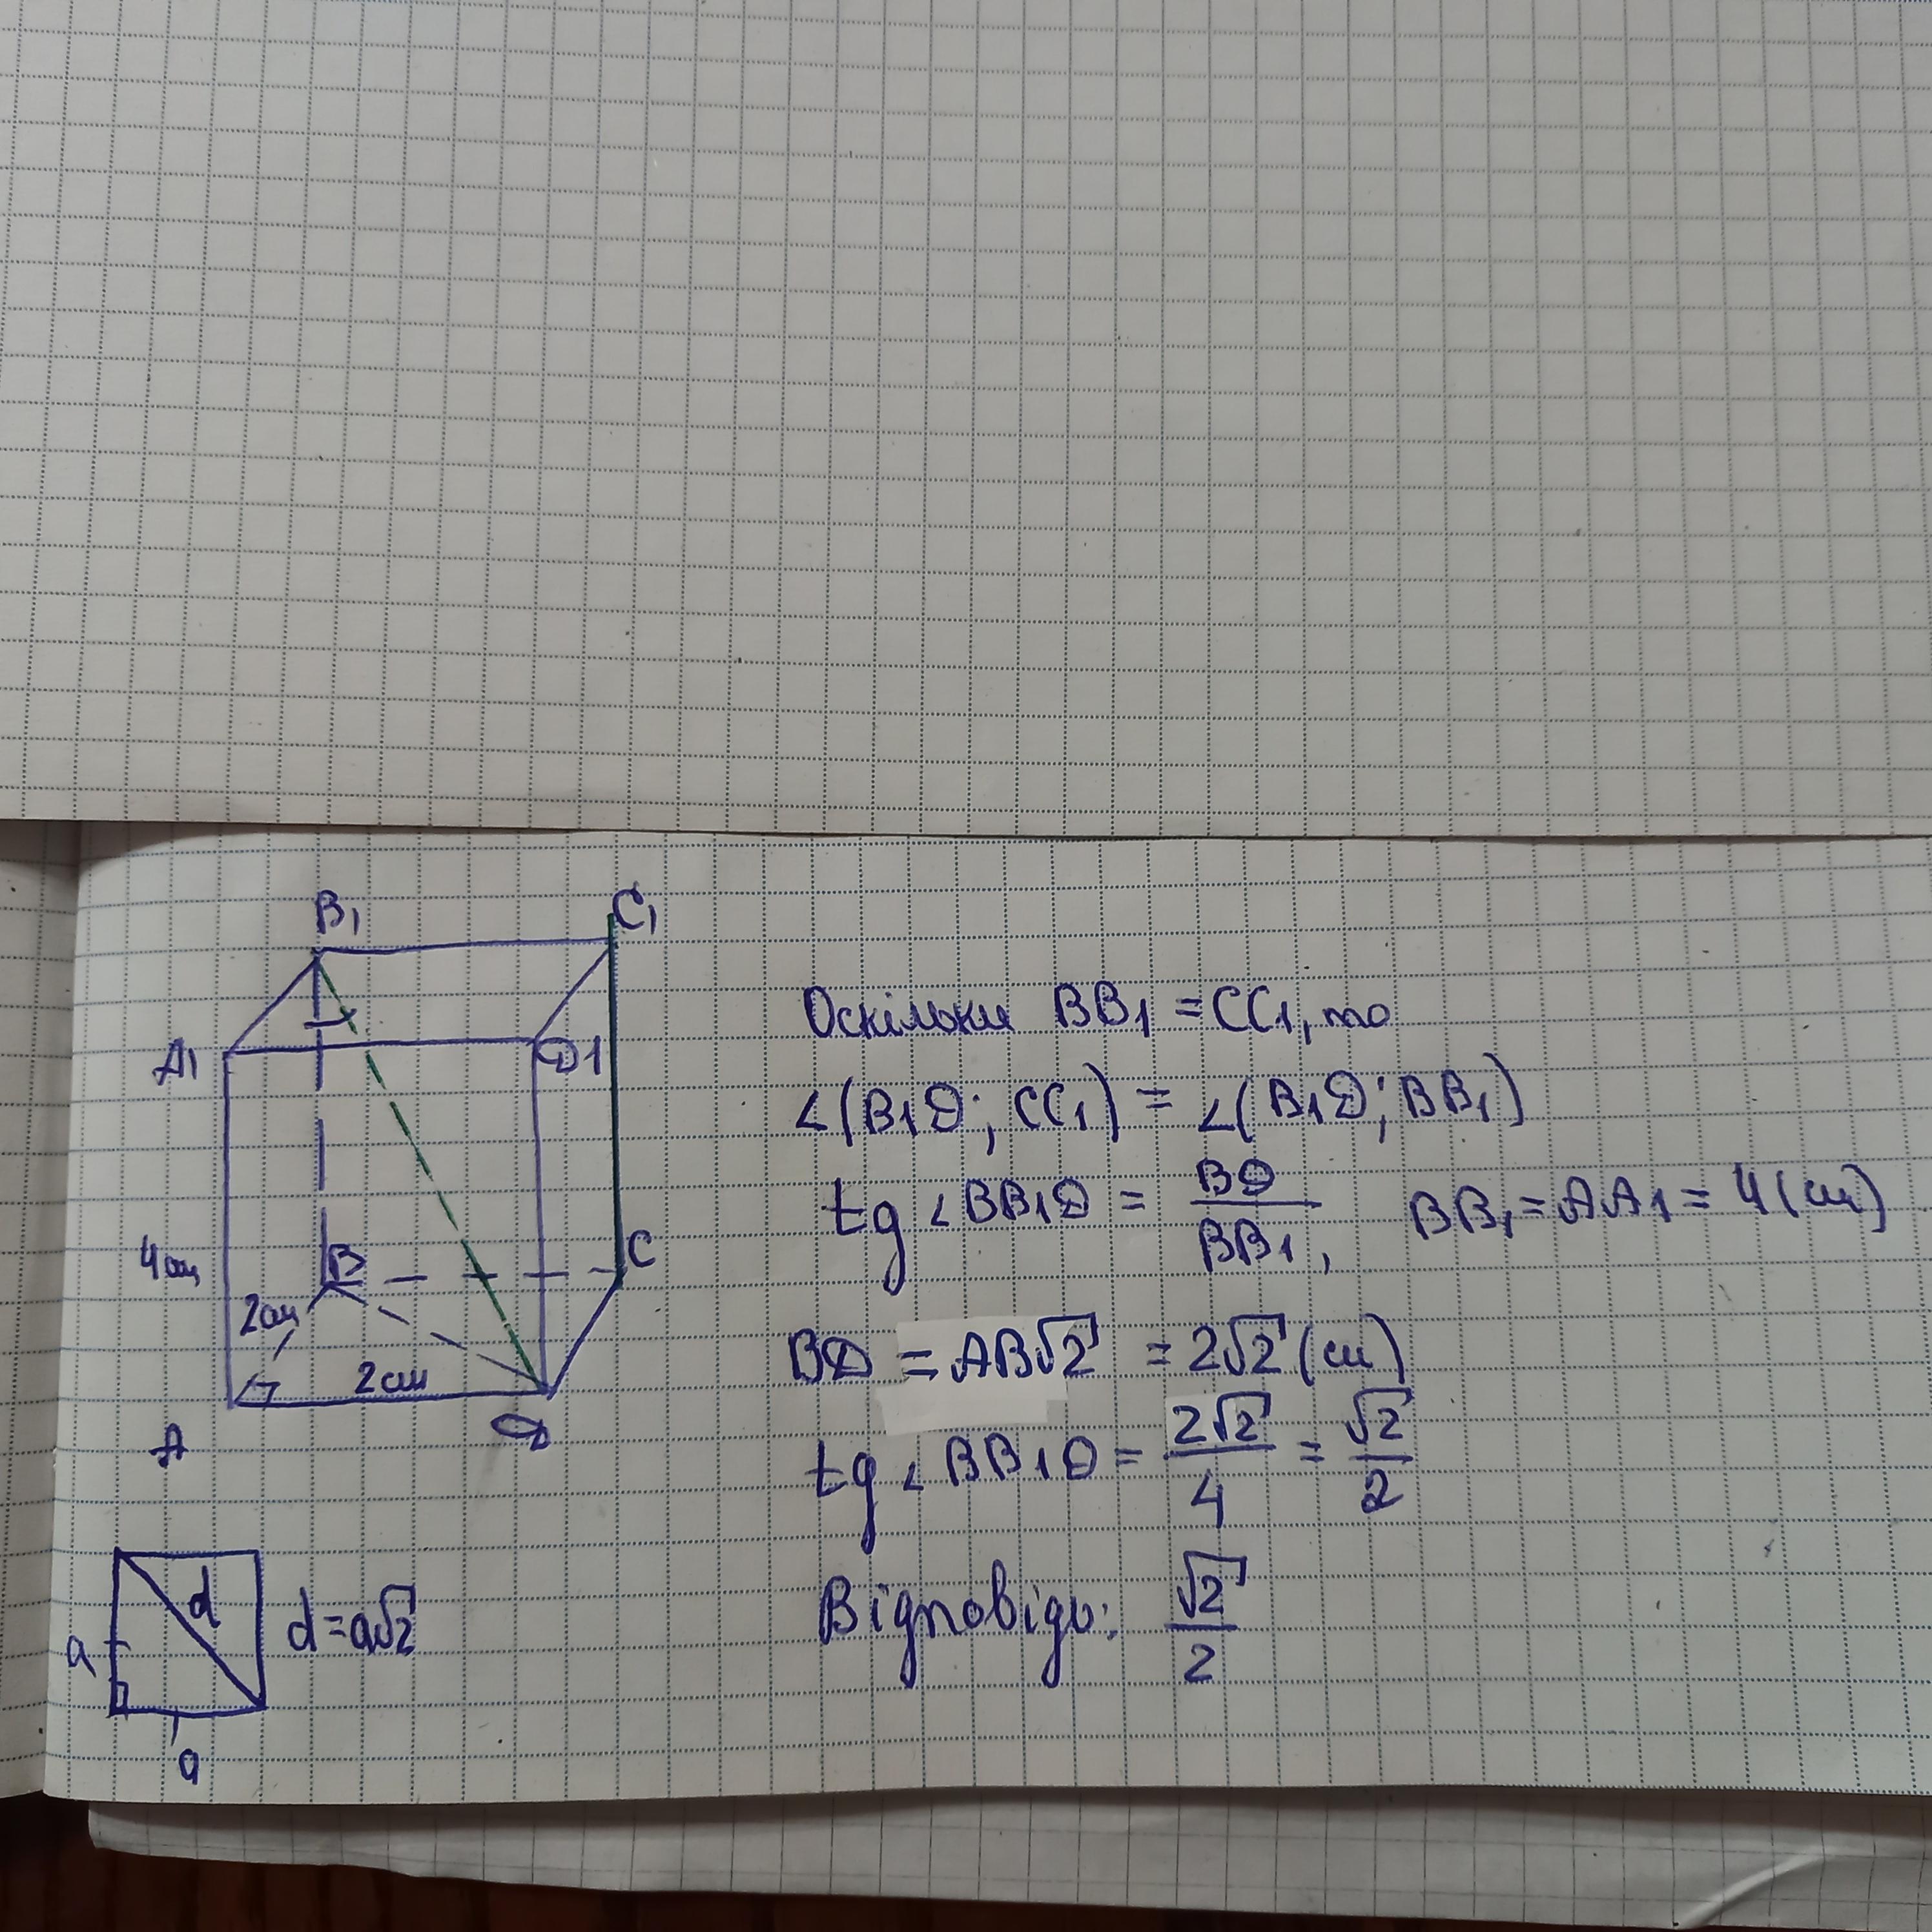 B₁
C₁
A₁
D1
4см
B
C
2см
2см
A
D
Оскільки BB1 = CC1, то
∠(B1D; CC1) = ∠(B1D; BB1)
tg ∠BB1D = BD/BB1, BB1 = AA1 = 4(см)
BD = AB√2 = 2√2 (см)
tg ∠BB1D = 2√2/4 = √2/2
Відповідь: √2/2
d
a
d=a√2
a